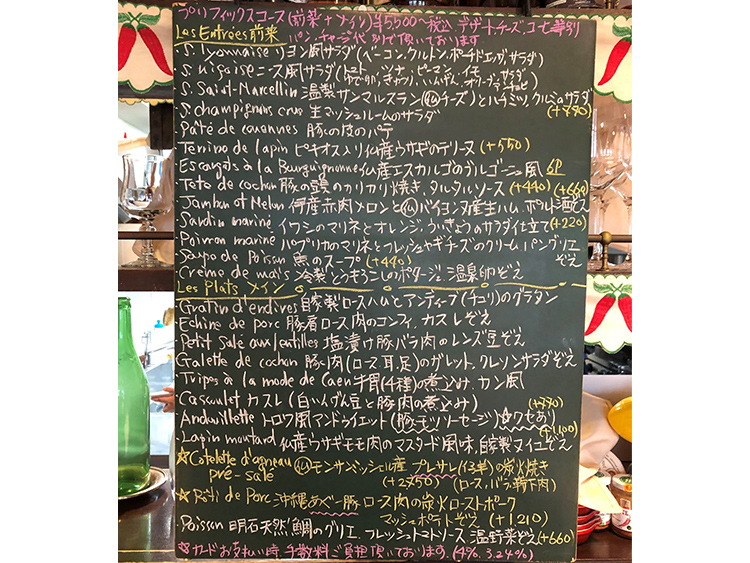 プリフィックスコース(前菜+メイン)¥5500〜税込 デザートチーズ、コーヒー等別
Les Entrées 前菜 パン、チャージ代別で頂いております
S. lyonnaise リヨン風サラダ(ベーコン、クルトン、ポーチドエッグ、サラダ)
S. niçaise ニース風サラダ(トマト、ツナ、ピーマン、イモ
ゆで卵、きゅうり、いんげん、オリーブ、アンチョビ
S. Saint-Marcellin 温製サンマルスラン(仏チーズ)とハチミツ、クルミのサラダ
(+770)
S. champignons crus 生マッシュルームのサラダ
Pâté de couennes 豚の皮のパテ
Terrine de lapin ピキオス入り仏産ウサギのテリーヌ (+550)
Escargots à la Bourguignonne 仏産エスカルゴのブルゴーニュ風 6P
Tete de cochon 豚の頭のカリカリ焼き、タルタルソース (+440)
(+660)
Jambon et Melon 伊産赤肉メロンと仏バイヨンヌ産生ハム、ポルト酒ぞえ
Sardin mariné イワシのマリネとオレンジ、ういきょうのサラダ仕立て (+220)
Poivron mariné パプリカのマリネとフレッシュヤギチーズのクリーム パングリエ
ぞえ
Soupe de Poisson 魚のスープ (+440)
Crème de maïs 冷製とうもろこしのポタージュ、温泉卵ぞえ
Les Plats メイン
Gratin d'endives 自家製ロースハムとアンディーブ(チコリ)のグラタン
Echine de porc 豚肩ロース肉のコンフィ、カスレぞえ
Petit Salé aux lentilles 塩漬け豚バラ肉のレンズ豆ぞえ
Galette de cochon 豚肉(ロース、耳、足)のガレット、クレソンサラダぞえ
Tripes à la mode de Caen 牛胃(4種)の煮込み、カン風
Cassoulet カスレ(白いんげん豆と豚肉の煮込み) (+770)
Andouillette トロワ風アンドゥイエット(豚モツソーセージ)☆クセあり
(+1100)
Lapin moutard 仏産ウサギモモ肉のマスタード風味、自家製マイユぞえ
☆Cotelette d'agneau 仏モンサンミッシェル産 プレサレ(仔羊)の炭火焼き
pré-salé (+2750) (ロース、バラ、鞍下肉)
☆Rôti de Porc 沖縄あぐー豚 ロース肉の炭火ローストポーク
マッシュポテトぞえ (+1210)
Poisson 明石天然鯛のグリエ、フレッシュトマトソース 温野菜ぞえ (+660)
※カードお支払い時、手数料ご負担頂いております。(4%、3.24%)